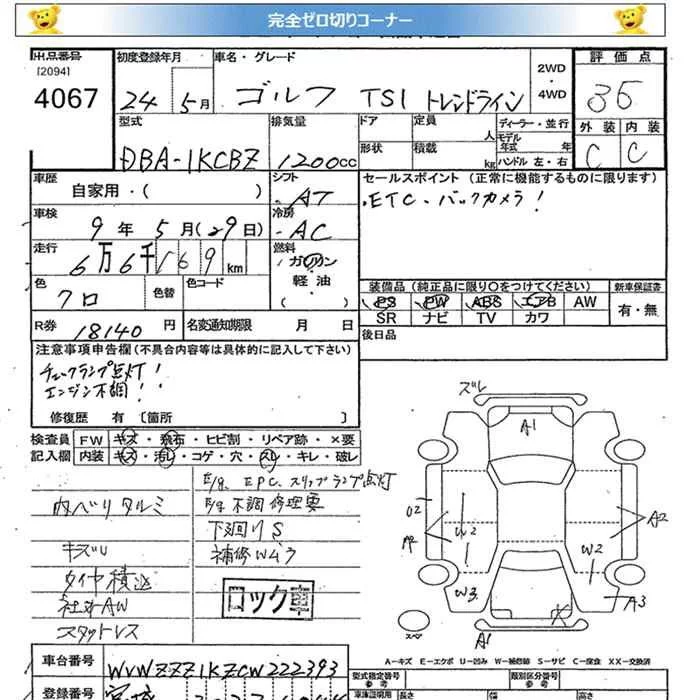 完全ゼロ切りコーナー
出品番号 初度登録年月 車名・グレード 2WD・4WD 評価点
[2094]
4067 24 5月 ゴルフ TSI トレンドライン 35
型式 排気量 ドア 定員 人 ディーラー・並行 外装 内装
DBA-1KCBZ 1200cc 形状 積載 kg モデル年式 年 ハンドル 左・右 C C
車歴 自家用・( ) シフト AT セールスポイント (正常に機能するものに限ります)
車検 9年 5月(29日) 冷房 AC ETC、バックカメラ!
走行 6万6千169km 燃料 ガソリン・軽油・( )
色 クロ 色替 色コード 装備品 (純正品に限り○をつけてください) 新車保証書
PS PW ABS エアB AW 有・無
SR ナビ TV カワ
R券 18140円 名変通知期限 月 日 後日品
注意事項申告欄 (不具合内容等は具体的に記入して下さい)
チェックランプ点灯!
エンジン不調!!
修復歴 有 〔箇所 〕
検査員 FW キズ・飛石・ヒビ割・リペア跡・×要
記入欄 内装 キズ・汚レ・コゲ・穴・スレ・キレ・破レ
E/g、EPC、スリップランプ点灯
内ベリタルミ E/g不調修理要
下廻りS
キズU 補修Wムラ
タイヤ積込
社外AW ロック車
スタッドレス
ズレ
A1
U2 A2
W2 W2
A2
W3 A3
X
スペ A1
車台番号 WVWZZZ1KZCW222393
A-キズ E-エクボ U-凹み W-補修跡 S-サビ C-腐食 XX-交換済
登録番号 宮城 型式指定番号 類別区分番号
参考 車庫証明用 長さ 幅 高さ